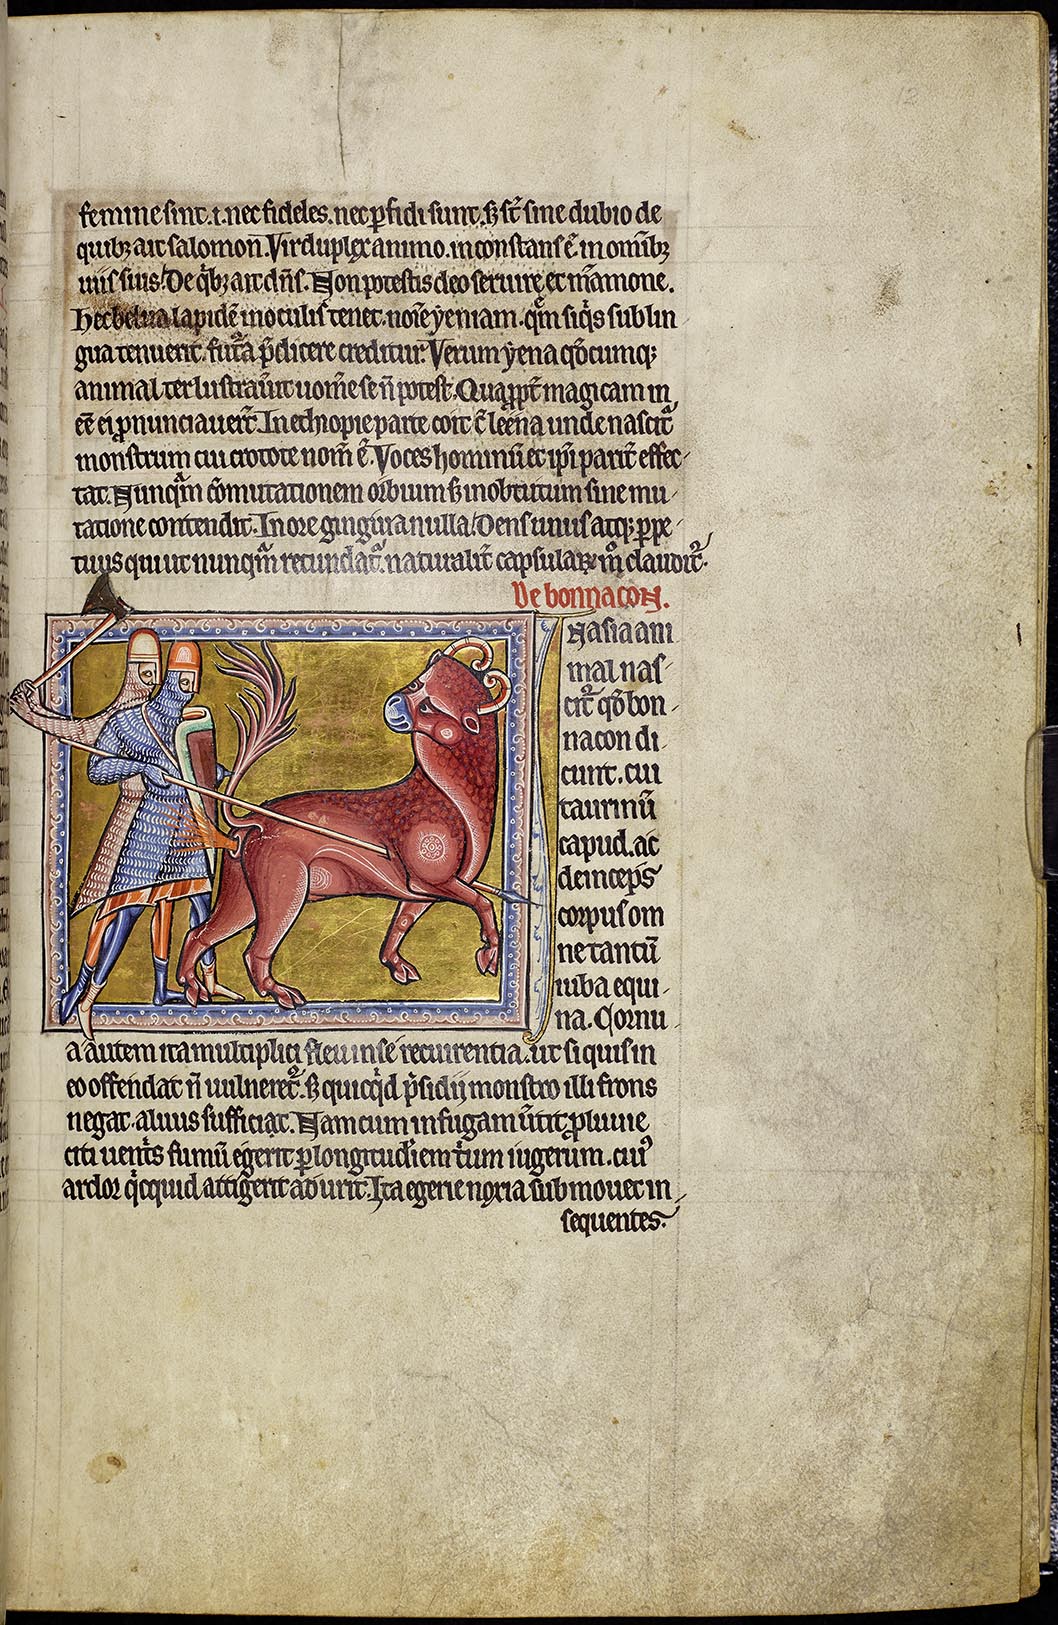 femine sint .i. nec fideles. nec ꝑfidi sunt. sꝫ st̄ sine dubio de
quibꝫ ait salomon̄. Vir duplex animo. inconstans ē in om̄ibꝫ
uiis suis. De qͥbꝫ ait dn̄s. Non potestis deo seruire et māmone.
Hec belua lapidē in oculis tenet. noīe yeniam. qͫ siqͥs sub lin
gua tenuerit. futa p̄dicere creditur. Verum yena qͦcumqꝫ
animal ter lustrau̅it mou̅e se n̄ potest. Quapp̄t magicam in
eē ei ꝓnunciauer̄t. In ethiopie parte coit c̄ leena unde nascit᷑
monstrum cui crocote nom̄ ē. Voces hominū et ip̄i parit̄ effec
tat. Nunqͣm cōmutationem orbium sꝫ in obtutum sine mu
tatione contendit. In ore gingiua nulla. Dens unus atqꝫ ꝑpe
tuus qui ut nunqͣm retundat᷑. naturalit̄ capsulaꝝ mͦ claudit᷑.
De bonnacon.
In asia ani
mal nas
cit᷑ qd̄ bon
nacon di
cunt. cui
taurinū
capud. ac
deinceps
corpus om
ne tantū
iuba equi
na. Cornu
a autem ita multiplici flexu in se recurrentia. ut si quis in
eo offendat n̄ uulneret᷑. Sꝫ quicqͥd p̄sidii monstro illi frons
negat. aluus sufficiat. Nam cum in fugam u̅tit ꝓluuie
citi uentͥs fumū egerit ꝑ longitudiem tͥum iugerum. cuiꝰ
ardor qͥcquid attigerit adurit. Ita egerie noxia submouet in
sequentes.
12